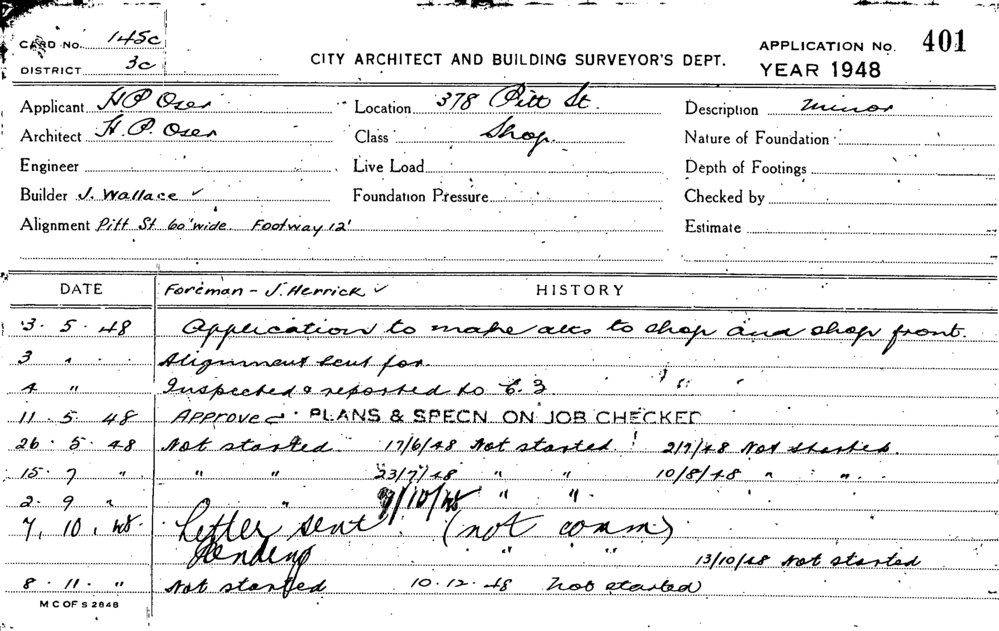 CARD No. 145c
DISTRICT 3c
CITY ARCHITECT AND BUILDING SURVEYOR'S DEPT.
APPLICATION No. 401
YEAR 1948
Applicant H P Oser Location 378 Pitt St. Description minor
Architect H. P. Oser Class Shop. Nature of Foundation
Engineer Live Load Depth of Footings
Builder J. Wallace ✓ Foundation Pressure Checked by
Alignment Pitt St 60' wide. Footway 12' Estimate
DATE Foreman - J. Herrick ✓ HISTORY
3. 5. 48 Application to make alts to shop and shop front.
3 " Alignment sent for.
4 " Inspected & reported to C.3
11. 5. 48 APPROVED PLANS & SPECN. ON JOB CHECKED
26. 5. 48 Not started. 17/6/48 Not started 2/7/48 Not started.
15. 7 " " " 23/7/48 " " 10/8/48 " "
2. 9 " " /10/48 " "
7. 10. 48. Letter sent (not comm)
Pending " " 13/10/48 Not started
8. 11. " Not started 10. 12. 48 Not started
M C OF S 2848